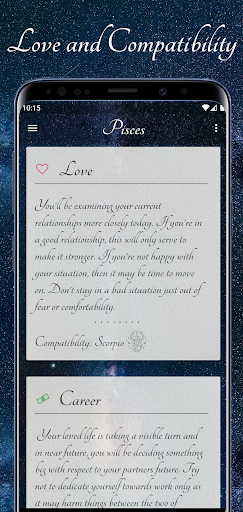 Love and Compatibility
10:15
Pisces
Love
You'll be examining your current
relationships more closely today. If you're in
a good relationship, this will only serve to
make it stronger. If you're not happy with
your situation, then it may be time to move
on. Don't stay in a bad situation just out of
fear or comfortability.
Compatibility: Scorpio
Career
Your loved life is taking a visible turn and
in near future, you will be deciding something
big with respect to your partners future. Try
not to dedicate yourself towards work only as
it may harm things between the two of